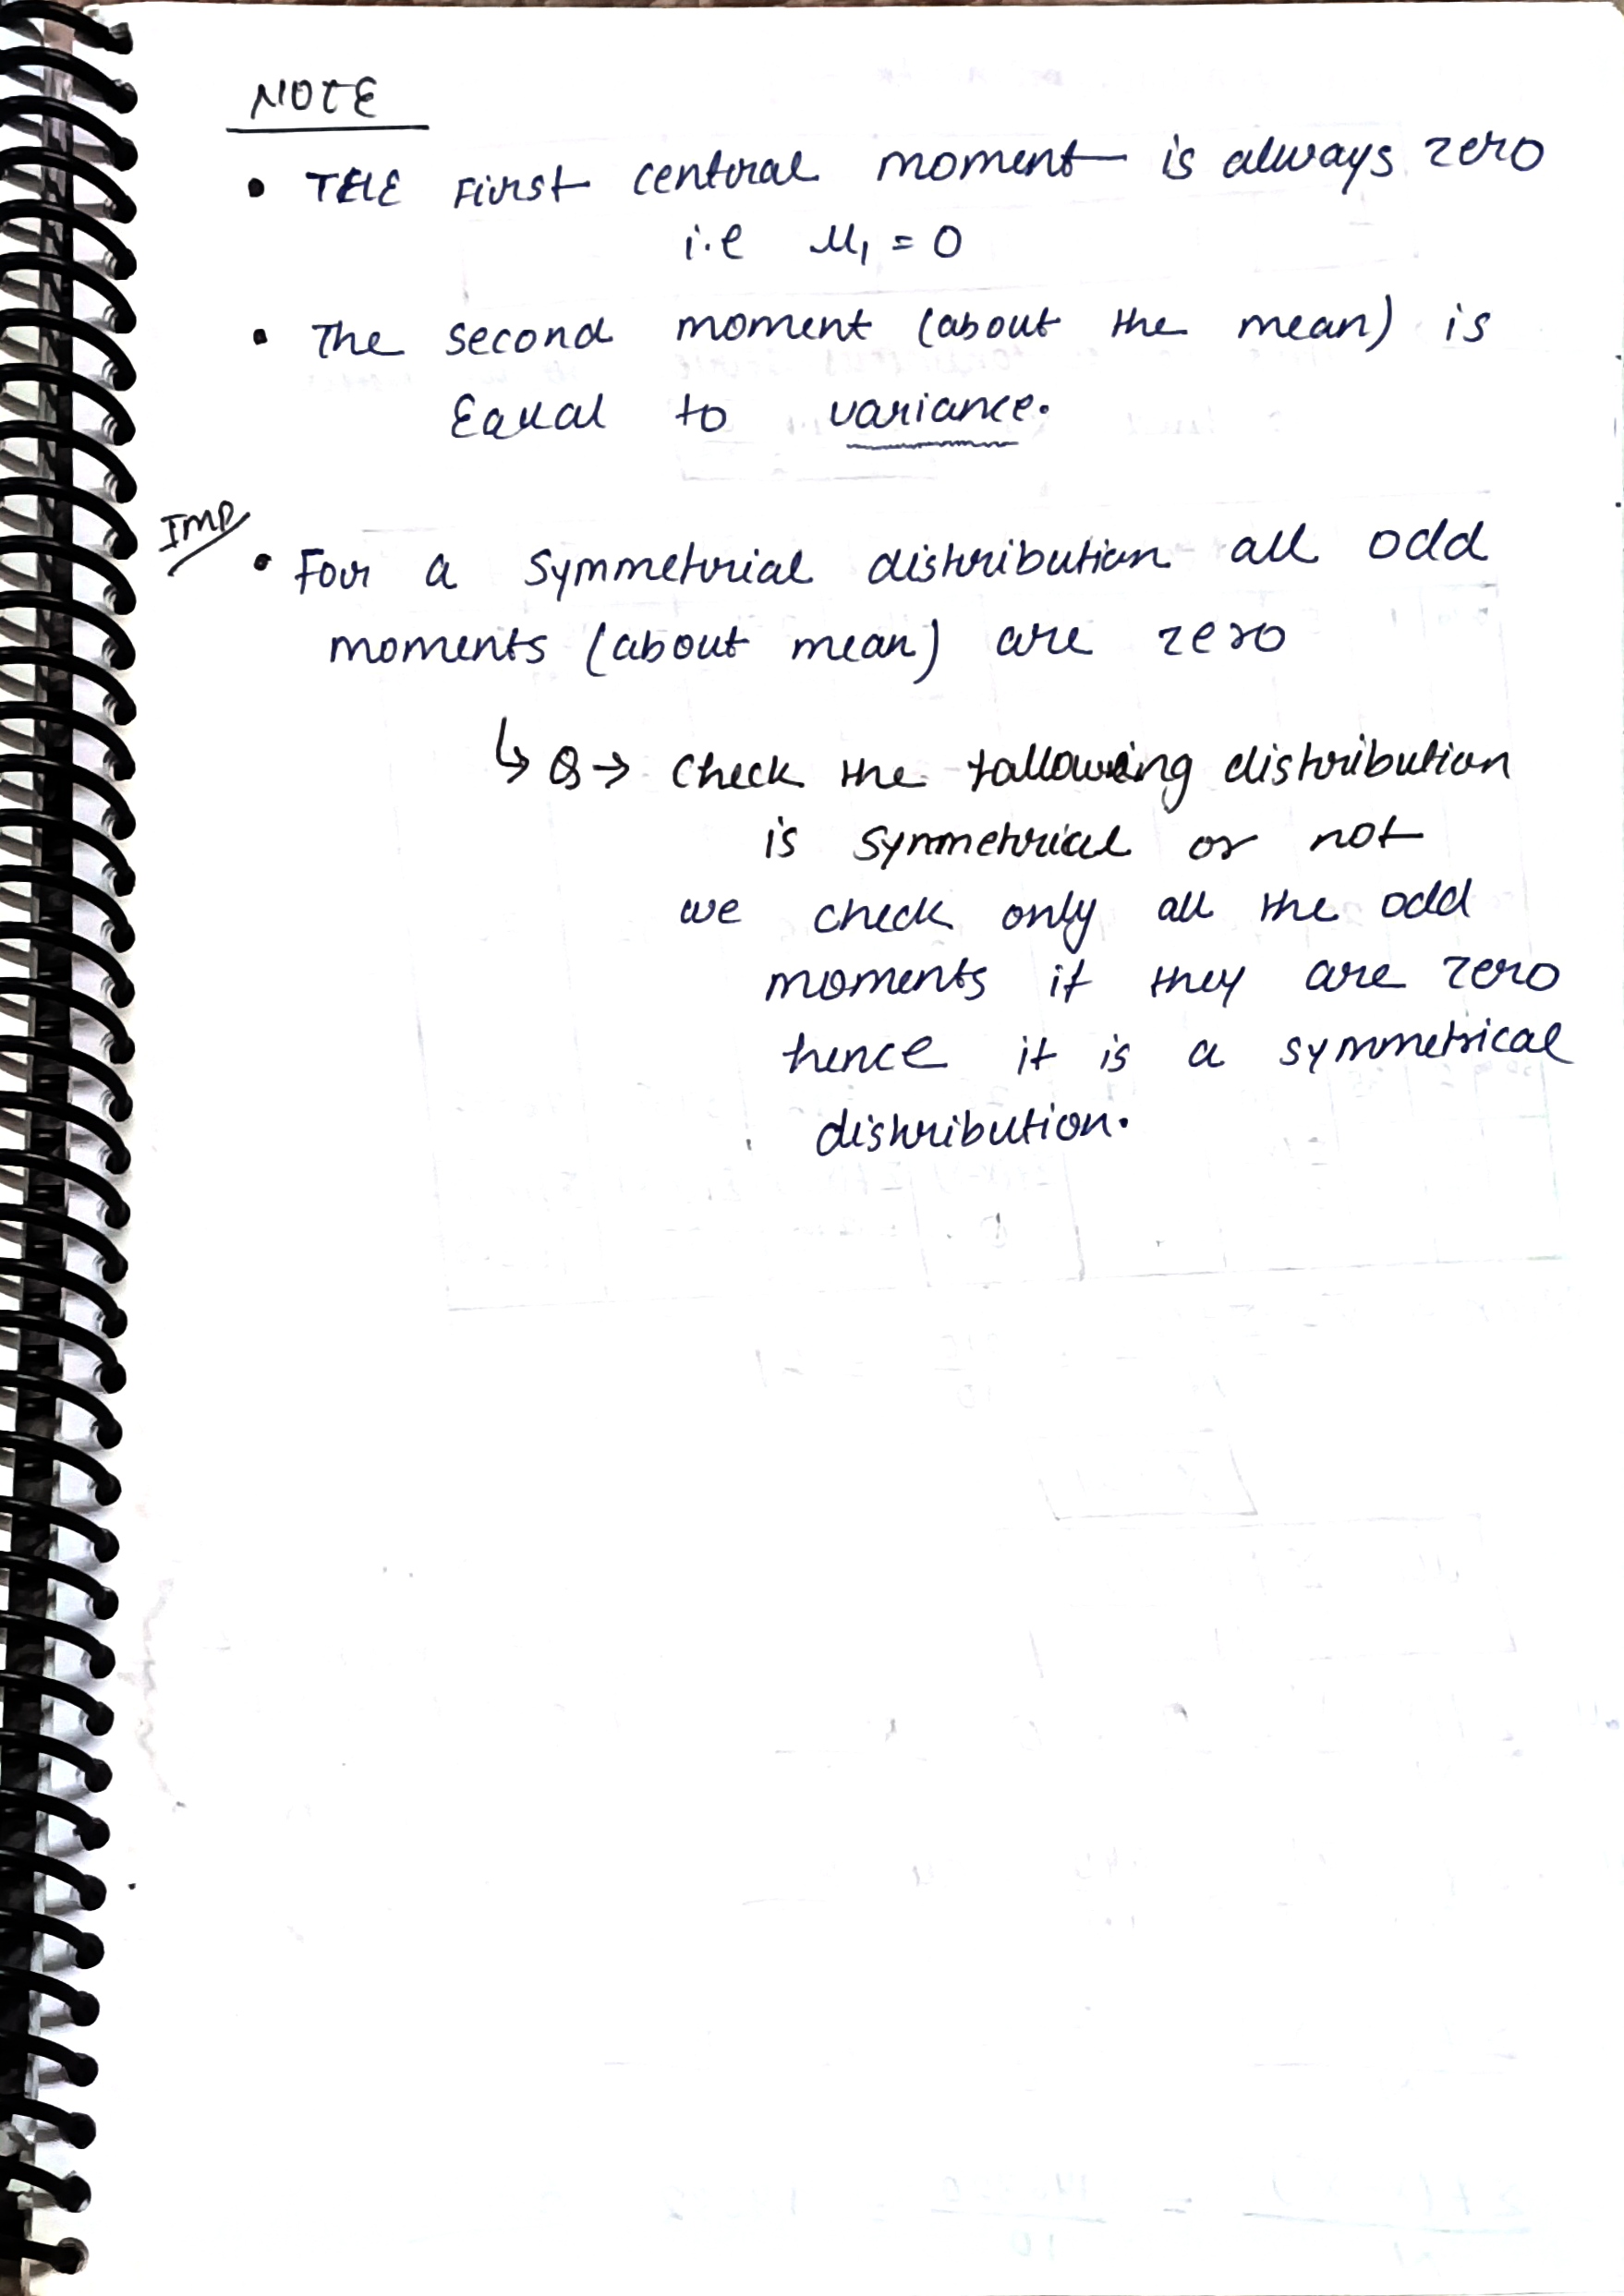 NOTE
• THE First central moment is always zero
i.e μ₁ = 0
• The second moment (about the mean) is
Equal to variance.
IMP
• For a Symmetrial distribution all odd
moments (about mean) are zero
↳ Q → Check the following distribution
is symmetrical or not
we check only all the odd
moments if they are zero
hence it is a symmetrical
distribution.